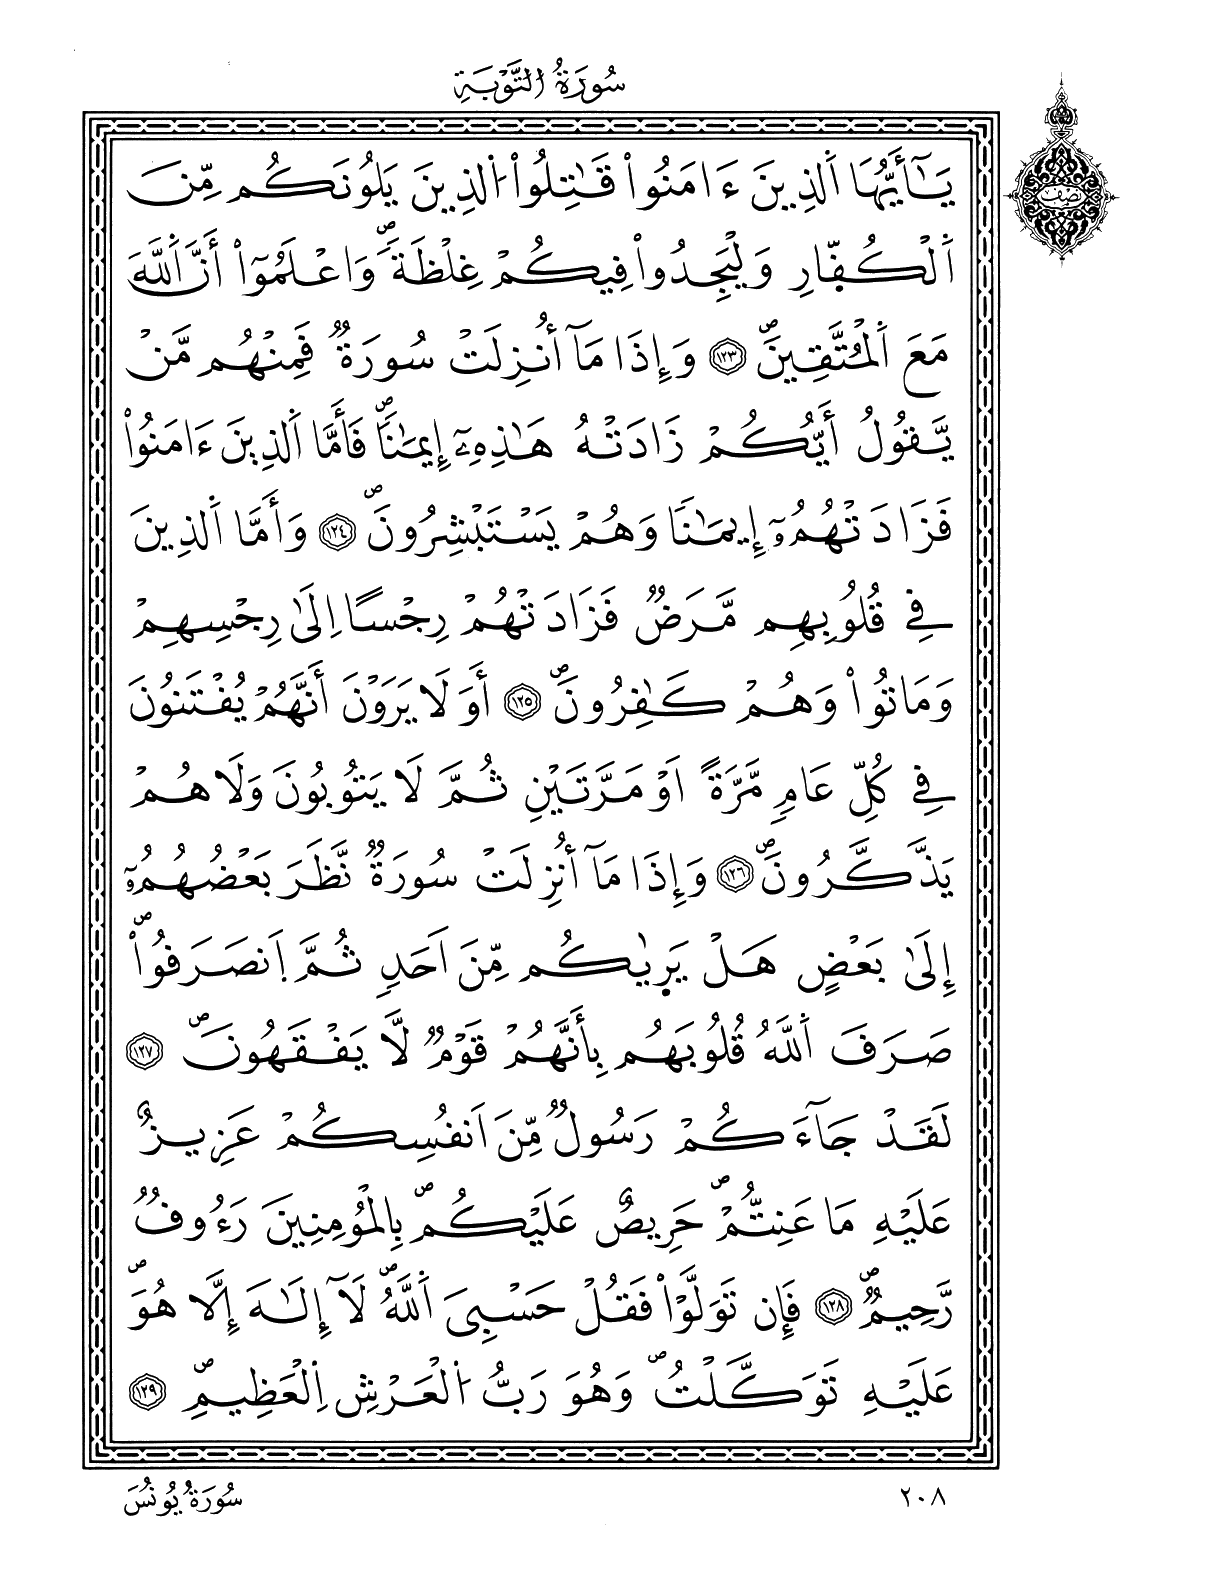 سُورَةُ التَّوْبَةِ
نصف
يَٰٓأَيُّهَا اَ۬لذِينَ ءَامَنُواْ قَٰتِلُواْ اُ۬لذِينَ يَلُونَكُم مِّنَ
اَ۬لْكُفّ۪ارِ وَلْيَجِدُواْ فِيكُمْ غِلْظَةٗۖ وَاعْلَمُوٓاْ أَنَّ اَ۬للَّهَ
مَعَ اَ۬لْمُتَّقِينَۖ ١٢٣ وَإِذَا مَآ أُنزِلَتْ سُورَةٞ فَمِنْهُم مَّنْ
يَّقُولُ أَيُّكُمْ زَادَتْهُ هَٰذِهِۦٓ إِيمَٰناٗۖ فَأَمَّا اَ۬لذِينَ ءَامَنُواْ
فَزَادَتْهُمُۥٓ إِيمَٰناٗ وَهُمْ يَسْتَبْشِرُونَۖ ١٢٤ وَأَمَّا اَ۬لذِينَ
فِے قُلُوبِهِم مَّرَضٞ فَزَادَتْهُمْ رِجْساً اِلَىٰ رِجْسِهِمْ
وَمَاتُواْ وَهُمْ كَٰفِرُونَۖ ١٢٥ أَوَلَا يَرَوْنَ أَنَّهُمْ يُفْتَنُونَ
فِے كُلِّ عَامٖ مَّرَّةً اَوْ مَرَّتَيْنِ ثُمَّ لَا يَتُوبُونَ وَلَا هُمْ
يَذَّكَّرُونَۖ ١٢٦ وَإِذَا مَآ أُنزِلَتْ سُورَةٞ نَّظَرَ بَعْضُهُمُۥٓ
إِلَىٰ بَعْضٍ هَلْ يَر۪ىٰكُم مِّنَ اَحَدٖ ثُمَّ اَ۪نصَرَفُواْۖ
صَرَفَ اَ۬للَّهُ قُلُوبَهُم بِأَنَّهُمْ قَوْمٞ لَّا يَفْقَهُونَۖ ١٢٧
لَقَدْ جَآءَكُمْ رَسُولٞ مِّنَ اَنفُسِكُمْ عَزِيزٌ
عَلَيْهِ مَا عَنِتُّمْۖ حَرِيصٌ عَلَيْكُمۖ بِالْمُؤْمِنِينَ رَءُوفٞ
رَّحِيمٞۖ ١٢٨ فَإِن تَوَلَّوْاْ فَقُلْ حَسْبِيَ اَ۬للَّهُ لَآ إِلَٰهَ إِلَّا هُوَۖ
عَلَيْهِ تَوَكَّلْتُۖ وَهُوَ رَبُّ اُ۬لْعَرْشِ اِ۬لْعَظِيمِۖ ١٢٩
٢٠٨
سُورَةُ يُونُسَ